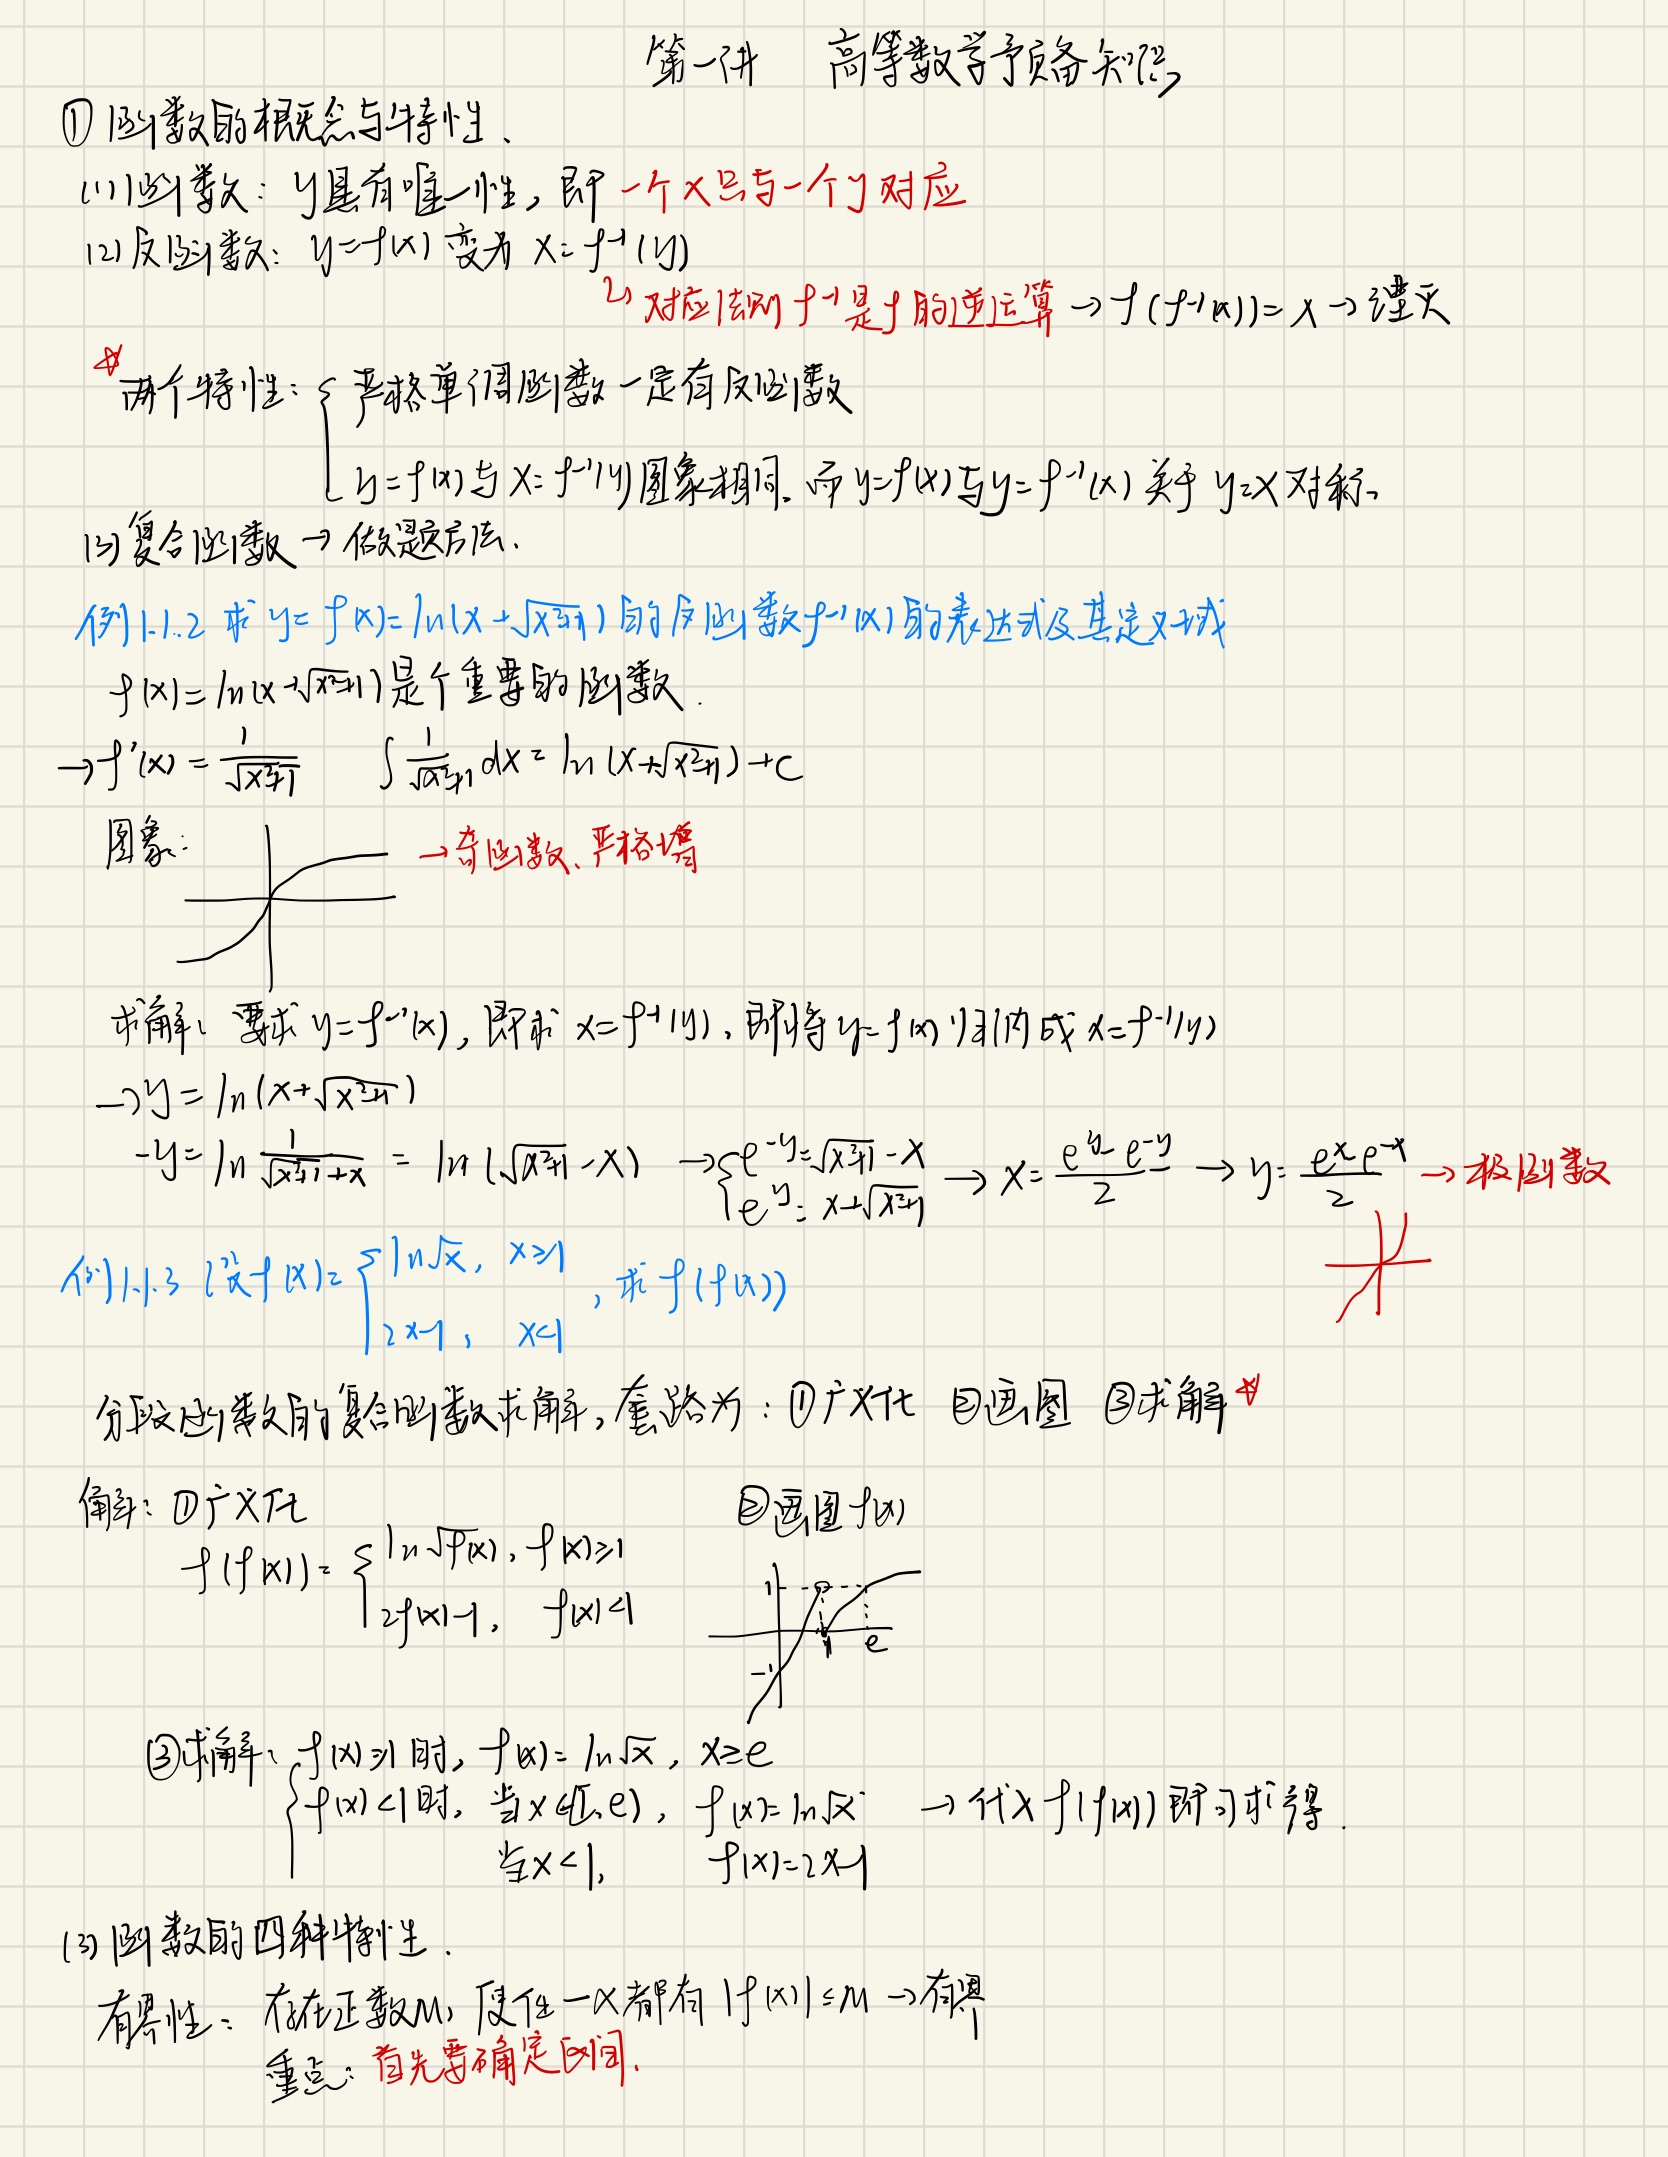 第一讲 高等数学预备知识
① 函数的概念与特性.
(1) 函数: y具有唯一性, 即一个x只与一个y对应
(2) 反函数: y=f(x) 变为 x=f⁻¹(y)
↳ 对应法则 f⁻¹ 是 f 的逆运算 → f(f⁻¹(x))=x → 湮灭
☆两个特性: { 严格单调函数一定有反函数
y=f(x)与x=f⁻¹(y)图象相同。而y=f(x)与y=f⁻¹(x)关于y=x对称。
(3) 复合函数 → 做题方法.
例1.1.2 求 y=f(x)=ln(x+√(x²+1)) 的反函数f⁻¹(x)的表达式及其定义域
f(x)=ln(x+√(x²+1))是个重要的函数.
→f'(x)=1/√(x²+1) ∫1/√(x²+1) dx=ln(x+√(x²+1))+C
图象: →奇函数、严格增
求解: 要求 y=f⁻¹(x), 即求 x=f⁻¹(y), 即将y=f(x)归纳成x=f⁻¹(y)
→y=ln(x+√(x²+1))
-y=ln 1/(√(x²+1)+x) = ln(√(x²+1)-x) →{ e^(-y)=√(x²+1)-x
e^y=x+√(x²+1) → x=(e^y-e^(-y))/2 → y=(e^x-e^(-x))/2 →极函数
例1.1.3 设f(x)={ ln√x, x≥1
2x-1, x<1 , 求 f(f(x))
分段函数的复合函数求解, 套路为: ①广义化 ②画图 ③求解☆
解: ①广义化 ②画图 f(x)
f(f(x))={ ln√f(x), f(x)≥1
2f(x)-1, f(x)<1
1
1 e
-1
③求解: { f(x)≥1时, f(x)=ln√x, x≥e
f(x)<1时, 当x∈[1,e), f(x)=ln√x → 代入f(f(x))即可求得.
当x<1, f(x)=2x-1
(3) 函数的四种特性.
有界性: 存在正数M, 使任一x都有|f(x)|≤M →有界
重点: 首先要确定区间.